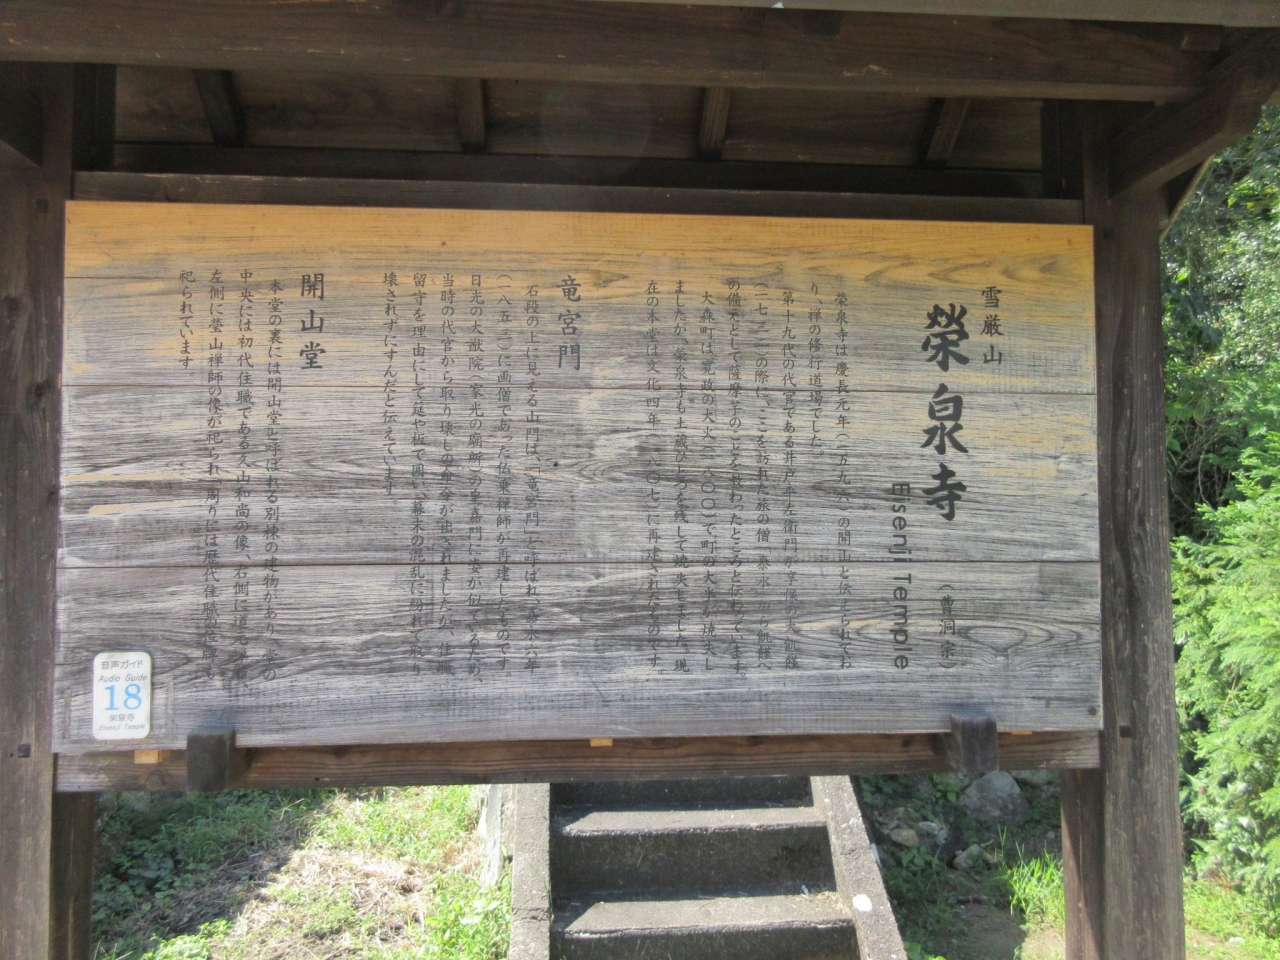 雪厳山
榮泉寺
(曹洞宗)
Eisenji Temple
榮泉寺は慶長元年(一五九六)の開山と伝えられてお
り、禅の修行道場でした。
第十九代の代官である井戸平左衛門が享保の大飢饉
(一七三二)の際に、ここを訪れた旅の僧「泰永」から飢饉へ
の備えとして薩摩芋のことを教わったところと伝わっています。
大森町は寛政の大火(一八〇〇)で町の大半が焼失し
ましたが、榮泉寺も土蔵ひとつを残して焼失しました。現
在の本堂は文化四年(一八〇七)に再建されたものです。
竜宮門
石段の上に見える山門は、「竜宮門」と呼ばれ、嘉永六年
(一八五三)に画僧であった仏乗禅師が再建したものです。
日光の大猷院(家光の廟所)の皇嘉門に姿が似ているため、
当時の代官から取り壊しの命令が出されましたが、住職
留守を理由にして莚や板で囲い、幕末の混乱に紛れて取り
壊されずにすんだと伝えています。
開山堂
本堂の裏には開山堂と呼ばれる別棟の建物があり、堂の
中央には初代住職である久山和尚の像、右側に道元禅師、
左側に瑩山禅師の像が祀られ、周りには歴代住職の位牌も
祀られています。
音声ガイド
Audio Guide
18
栄泉寺
Eisenji Temple